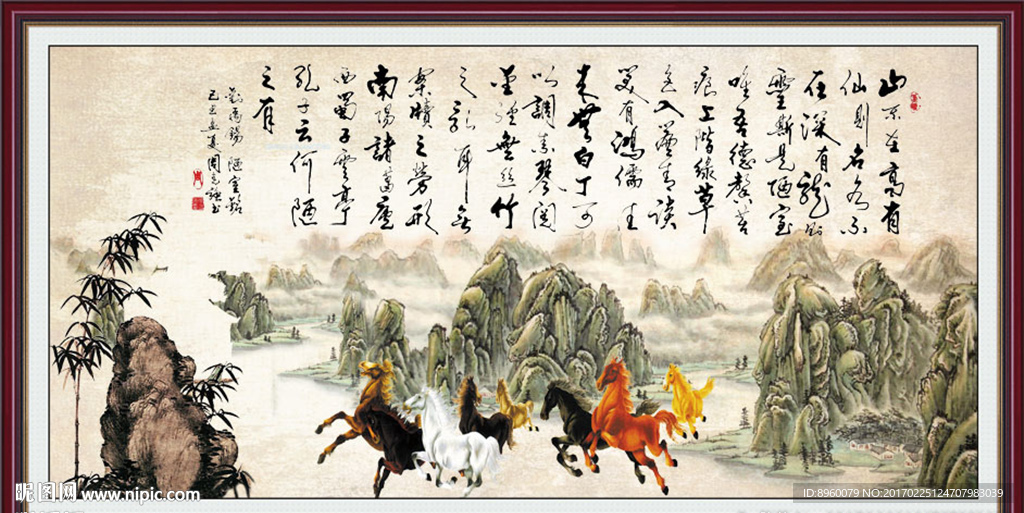 山不在高有
仙則名水不
在深有龍則
靈斯是陋室
唯吾德馨苔
痕上階綠草
色入簾青談
笑有鴻儒往
來無白丁可
以調素琴閱
金經無絲竹
之亂耳無
案牘之勞形
南陽諸葛廬
西蜀子雲亭
孔子云何陋
之有
劉禹錫陋室銘
昵图网 www.nipic.com
ID:8960079 NO:20170225124707983039